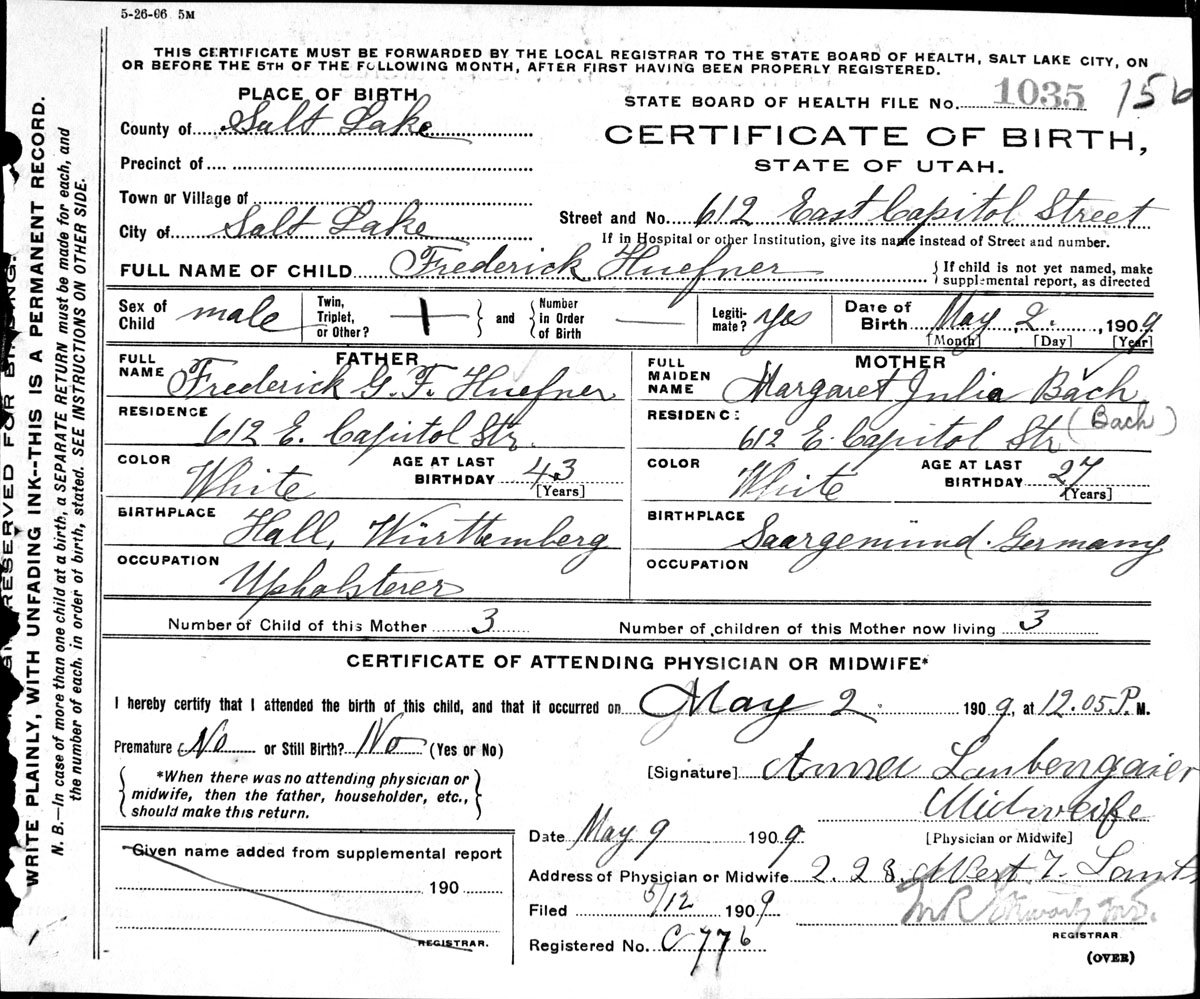 5-26-06 5M
THIS CERTIFICATE MUST BE FORWARDED BY THE LOCAL REGISTRAR TO THE STATE BOARD OF HEALTH, SALT LAKE CITY, ON
OR BEFORE THE 5TH OF THE FOLLOWING MONTH, AFTER FIRST HAVING BEEN PROPERLY REGISTERED.
PLACE OF BIRTH
STATE BOARD OF HEALTH FILE No. 1035 156
County of Salt Lake
CERTIFICATE OF BIRTH,
Precinct of
STATE OF UTAH.
Town or Village of
City of Salt Lake
Street and No. 612 East Capitol Street
If in Hospital or other Institution, give its name instead of Street and number.
FULL NAME OF CHILD Frederick Huefner
{ If child is not yet named, make
supplemental report, as directed
Sex of Child male
Twin, Triplet, or Other? } and { Number in Order of Birth
Legiti-mate? yes
Date of Birth May 2. , 1909
[Month] [Day] [Year]
FATHER
FULL NAME Frederick G. F. Huefner
RESIDENCE 612 E. Capitol Str.
COLOR White AGE AT LAST BIRTHDAY 43 [Years]
BIRTHPLACE Hall, Württemberg
OCCUPATION Upholsterer
MOTHER
FULL MAIDEN NAME Margaret Julia Bach
(Bach)
RESIDENCE 612 E. Capitol Str
COLOR White AGE AT LAST BIRTHDAY 27 [Years]
BIRTHPLACE Saargemünd. Germany
OCCUPATION
Number of Child of this Mother 3 Number of children of this Mother now living 3
CERTIFICATE OF ATTENDING PHYSICIAN OR MIDWIFE*
I hereby certify that I attended the birth of this child, and that it occurred on May 2. 1909, at 12.05 P. M.
Premature No or Still Birth? No (Yes or No)
{ *When there was no attending physician or
midwife, then the father, householder, etc.,
should make this return. }
[Signature] Anna Laubengaier
Midwife
[Physician or Midwife]
Date May 9 1909
Address of Physician or Midwife 228
Filed 5/12 1909
REGISTRAR
Registered No. C 776
(OVER)
Given name added from supplemental report
190
REGISTRAR.
RESERVED FOR
WRITE PLAINLY, WITH UNFADING INK--THIS IS A PERMANENT RECORD.
N. B.—In case of more than one child at a birth, a SEPARATE RETURN must be made for each, and
the number of each, in order of birth, stated. SEE INSTRUCTIONS ON OTHER SIDE.